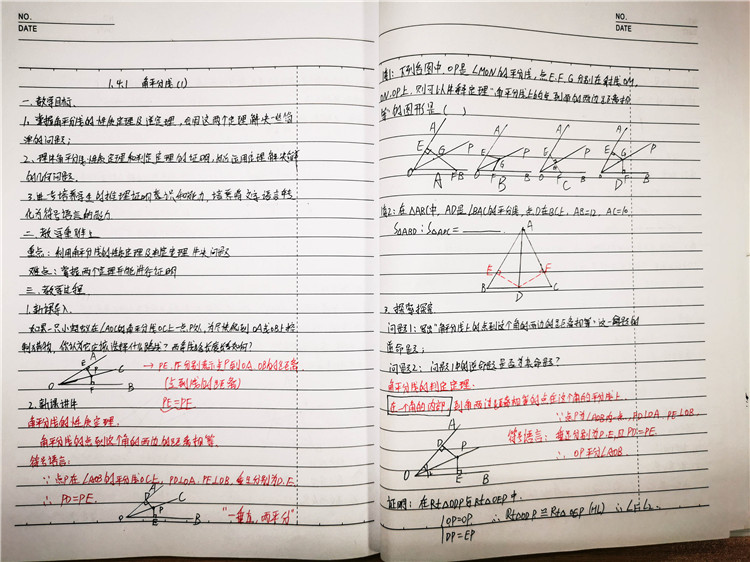 NO.
DATE
1.4.1 角平分线(1)
一、教学目标
1、掌握角平分线的性质定理及逆定理，会用这两个定理解决一些简
单的问题；
2、理解角平分线性质定理和判定定理的证明，能运用定理解决简单
的几何问题.
3、进一步培养学生的推理证明意识和能力，培养将文字语言转
化为符号语言的能力
二、教学重难点
重点：利用角平分线的性质定理及判定定理解决问题
难点：掌握两个定理并能进行证明
三、教学过程
1.新课导入
如果一只小蚂蚁在∠AOB的角平分线OC上一点P处，为尽快爬到OA或OB上
你认为它应该选择什么路线？两条路线长度如何？
A
E
P
C
O
F
B
→ PE、PF分别表示点P到OA、OB的距离
(点到线的距离)
PE=PF
2.新课讲授
角平分线的性质定理.
角平分线的点到这个角的两边的距离相等.
符号语言：
∵点P在∠AOB的平分线OC上，PD⊥OA，PE⊥OB，垂足分别为D、E.
∴ PD=PE.
A
D
C
P
O
E
B
“一垂直，两平分”
NO.
DATE
题1：下列各图中，OP是∠MON的平分线，点E、F、G分别在射线OM，
ON，OP上，则可以解释定理“角平分线上的点到角的两边距离相
等”的图形是（ ）
A B C D
题2：在△ABC中，AD是∠BAC的平分线，点D在BC上，AB=12，AC=10.
S△ABD：S△ADC=
A
E F
B D C
3.探索探究
问题1：写出“角平分线上的点到这个角的两边的距离相等”这一命题的
逆命题；
问题2：问题1中的逆命题是否是真命题？
角平分线的判定定理.
在一个角的内部，到角两边距离相等的点在这个角的平分线上
∵点P为∠AOB内一点，PD⊥OA，PE⊥OB，
符号语言：垂足分别为D、E，且PD=PE.
∴ OP平分∠AOB.
A
D
P
O
E
B
证明：在Rt△ODP与Rt△OEP中.
OP=OP
DP=EP
∴ Rt△ODP≌Rt△OEP (HL) ∴∠1=∠2.